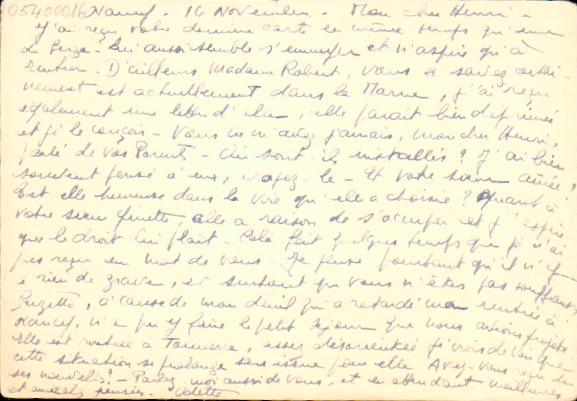 05400016 Nancy - 16 November - Mon cher Henri -
J'ai reçu votre dernière carte en même temps qu'une
de Serge - Lui aussi semble s'ennuyer et n'aspire qu'à
rentrer - D'ailleurs Madame Robert, vous le savez certai-
nement est actuellement dans la Marne, j'ai reçu
également une lettre d'elle, elle paraît bien déprimée
et je le conçois - Vous ne m'avez jamais, mon cher Henri,
parlé de vos Parents - Où sont-ils installés ? J'ai bien
souvent pensé à eux, croyez-le - Et votre soeur aînée,
Est elle heureuse dans la voie qu'elle a choisie ? Quant à
votre soeur Ginette, elle a raison de s'occuper et j'espère
que le droit lui plaît - Cela fait quelques temps que je n'ai
pas reçu un mot de vous - Je pense pourtant qu'il n'y
a rien de grave, et surtout que vous n'êtes pas souffrant,
Suzette, à cause de mon deuil qui a retardé mon rentrée à
Nancy, n'a pu y faire le petit séjour que nous avions projeté
Elle est rentrée à Tonnerre, assez désorientée je crois de voir que
cette situation se prolonge sans issue pour elle Avez-vous reçu de
ses nouvelles ? - Parlez moi aussi de vous, et en attendant meilleures
et amicales pensées. Odette